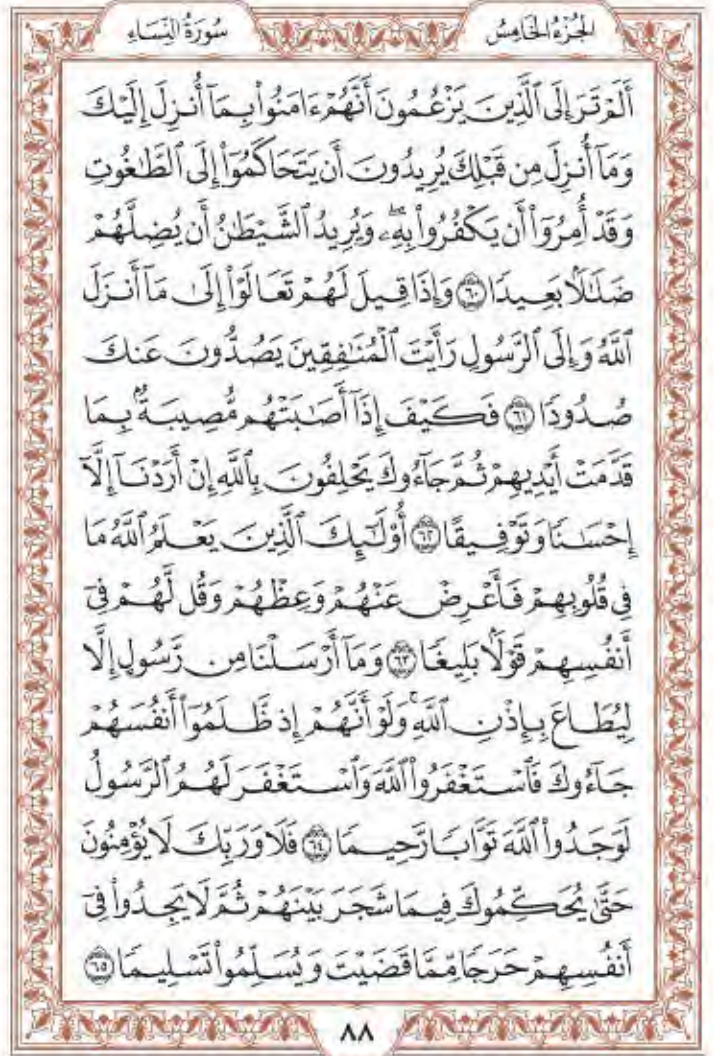 سُورَةُ النِّسَاءِ
الجُزْءُ الخَامِسُ
أَلَمْ تَرَ إِلَى ٱلَّذِينَ يَزْعُمُونَ أَنَّهُمْ ءَامَنُوا۟ بِمَآ أُنزِلَ إِلَيْكَ
وَمَآ أُنزِلَ مِن قَبْلِكَ يُرِيدُونَ أَن يَتَحَاكَمُوٓا۟ إِلَى ٱلطَّٰغُوتِ
وَقَدْ أُمِرُوٓا۟ أَن يَكْفُرُوا۟ بِهِۦۖ وَيُرِيدُ ٱلشَّيْطَٰنُ أَن يُضِلَّهُمْ
ضَلَٰلَۢا بَعِيدًا ٦٠ وَإِذَا قِيلَ لَهُمْ تَعَالَوْا۟ إِلَىٰ مَآ أَنزَلَ
ٱللَّهُ وَإِلَى ٱلرَّسُولِ رَأَيْتَ ٱلْمُنَٰفِقِينَ يَصُدُّونَ عَنكَ
صُدُودًا ٦١ فَكَيْفَ إِذَآ أَصَٰبَتْهُم مُّصِيبَةٌۢ بِمَا
قَدَّمَتْ أَيْدِيهِمْ ثُمَّ جَآءُوكَ يَحْلِفُونَ بِٱللَّهِ إِنْ أَرَدْنَآ إِلَّآ
إِحْسَٰنًا وَتَوْفِيقًا ٦٢ أُو۟لَٰٓئِكَ ٱلَّذِينَ يَعْلَمُ ٱللَّهُ مَا
فِى قُلُوبِهِمْ فَأَعْرِضْ عَنْهُمْ وَعِظْهُمْ وَقُل لَّهُمْ فِىٓ
أَنفُسِهِمْ قَوْلَۢا بَلِيغًا ٦٣ وَمَآ أَرْسَلْنَا مِن رَّسُولٍ إِلَّا
لِيُطَاعَ بِإِذْنِ ٱللَّهِۚ وَلَوْ أَنَّهُمْ إِذ ظَّلَمُوٓا۟ أَنفُسَهُمْ
جَآءُوكَ فَٱسْتَغْفَرُوا۟ ٱللَّهَ وَٱسْتَغْفَرَ لَهُمُ ٱلرَّسُولُ
لَوَجَدُوا۟ ٱللَّهَ تَوَّابًا رَّحِيمًا ٦٤ فَلَا وَرَبِّكَ لَا يُؤْمِنُونَ
حَتَّىٰ يُحَكِّمُوكَ فِيمَا شَجَرَ بَيْنَهُمْ ثُمَّ لَا يَجِدُوا۟ فِىٓ
أَنفُسِهِمْ حَرَجًا مِّمَّا قَضَيْتَ وَيُسَلِّمُوا۟ تَسْلِيمًا ٦٥
٨٨